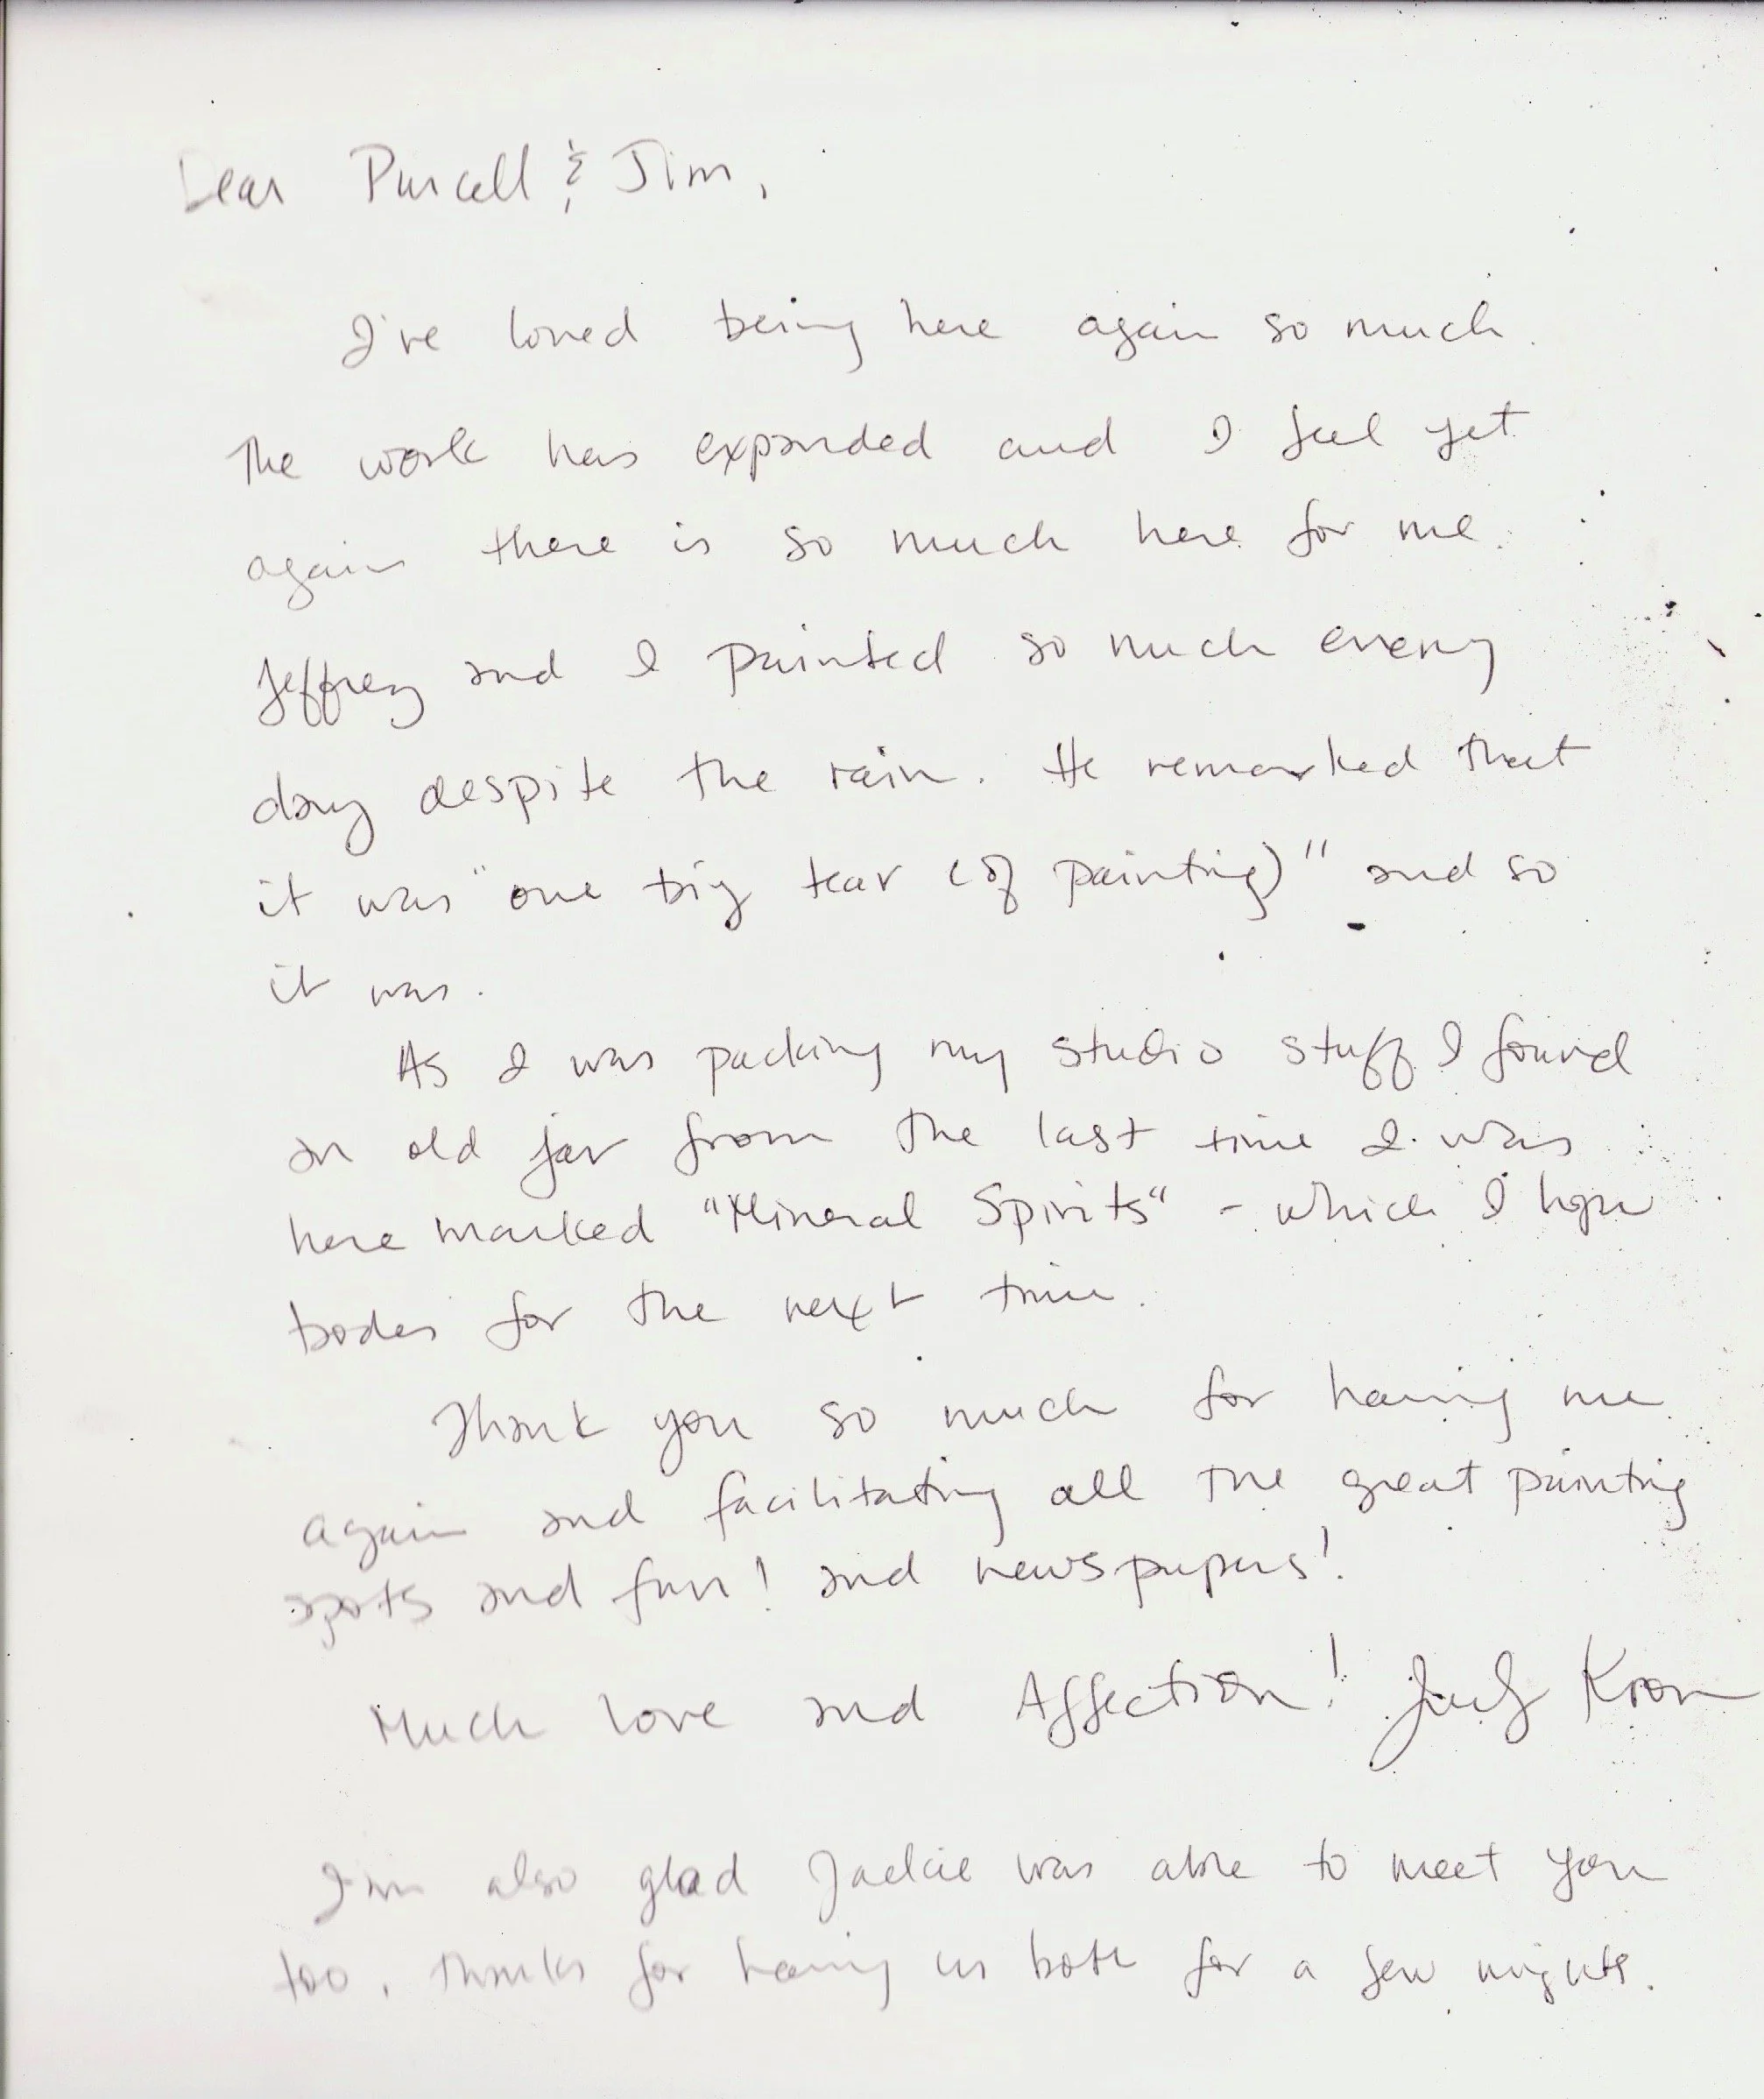 Dear Purcell & Jim,
I've loved being here again so much.
The work has expanded and I feel yet
again there is so much here for me.
Jeffrey and I painted so much every
day despite the rain. He remarked that
it was "one big tear (of painting)" and so
it was.
As I was packing my studio stuff I found
an old jar from the last time I was
here marked "Mineral Spirits" - which I hope
bodes for the next time.
Thank you so much for having me
again and facilitating all the great painting
spots and fun! and newspapers!
Much love and Affection! Judy Kron
I'm also glad Jackie was able to meet you
too, thanks for having us both for a few nights.